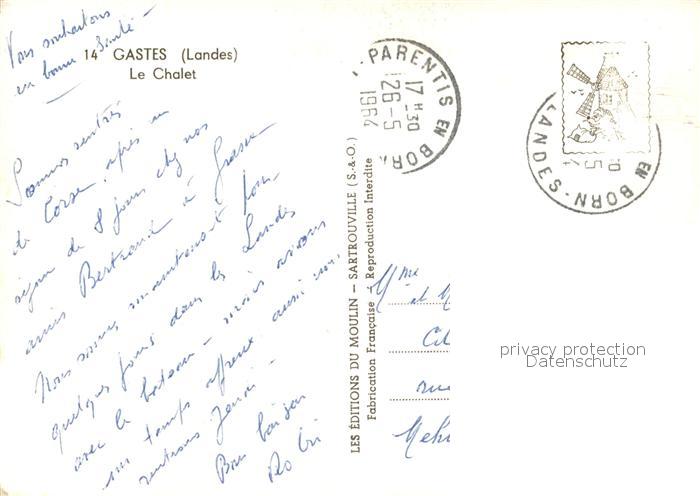 Vous souhaitons
en bonne Santé -
14 GASTES (Landes)
Le Chalet
Sommes rentrés
de Corse, après un
séjour de 8 jours chez nos
amis Bertrand à Grasse
Nous sommes maintenant pour
quelques jours dans les Landes
avec le bateau - mais avons
un temps affreux aussi nous
rentrons Jeudi -
Bons baisers
LES ÉDITIONS DU MOULIN - SARTROUVILLE (S.-&-O.)
Fabrication Française - Reproduction Interdite
PARENTIS EN BORN
17 H 30
26-5
1964
EN BORN - LANDES
Mme
et M
rue
privacy protection
Datenschutz